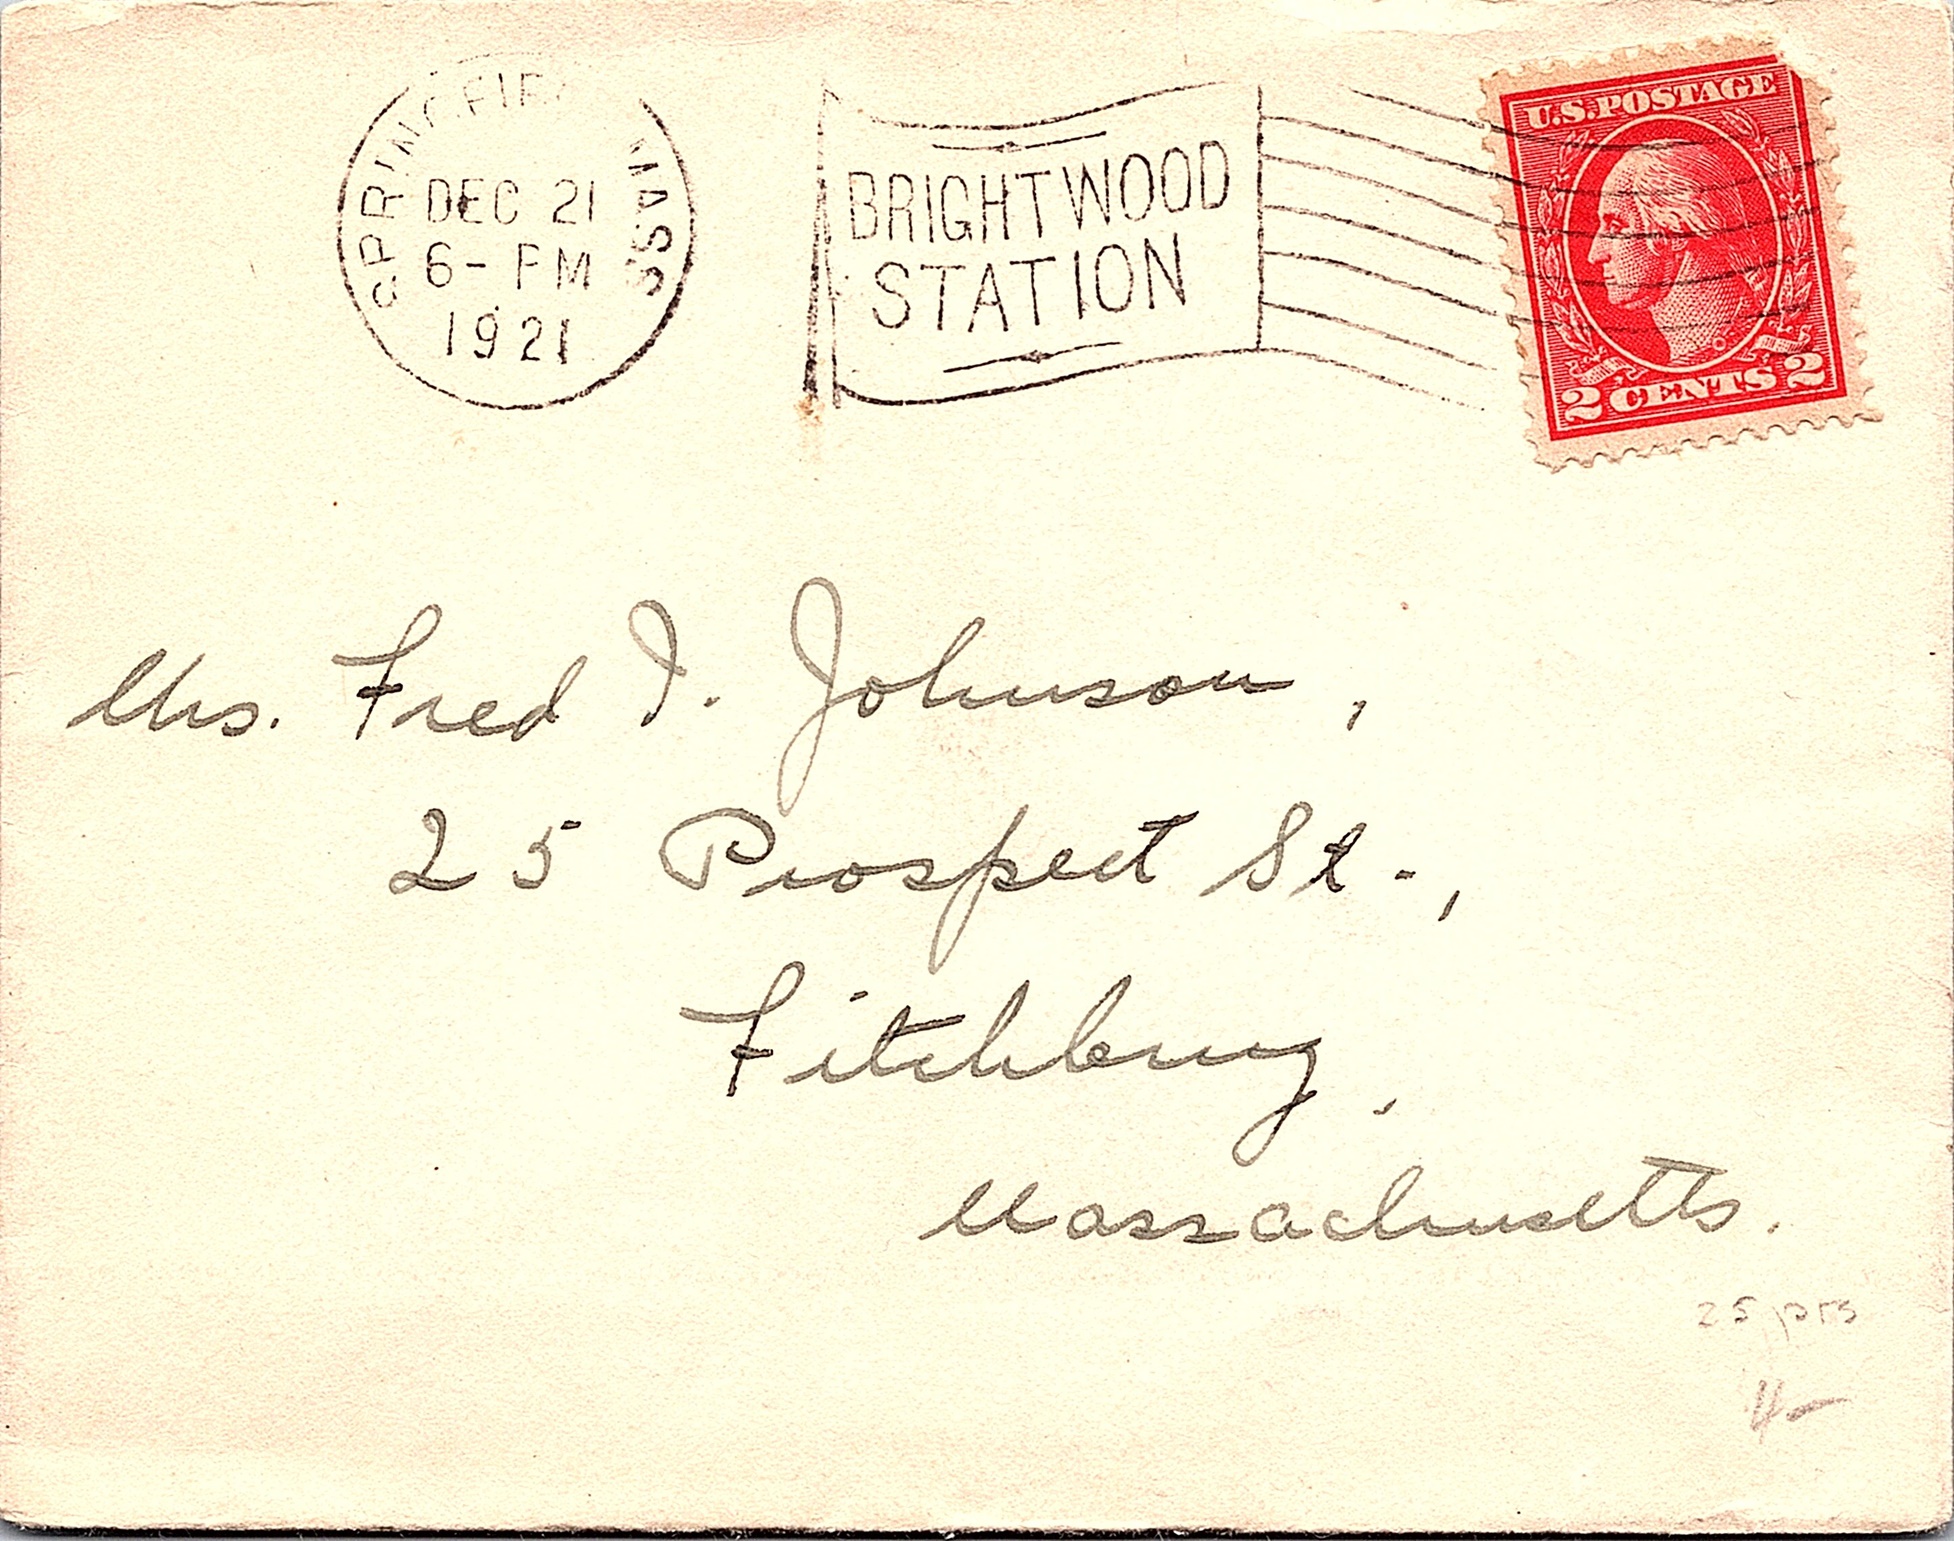 SPRINGFIELD MASS.
DEC 21
6- PM
1921
BRIGHTWOOD
STATION
U.S. POSTAGE
2 CENTS 2
Mrs. Fred I. Johnson,
25 Prospect St.,
Fitchburg,
Massachusetts.
25
4-